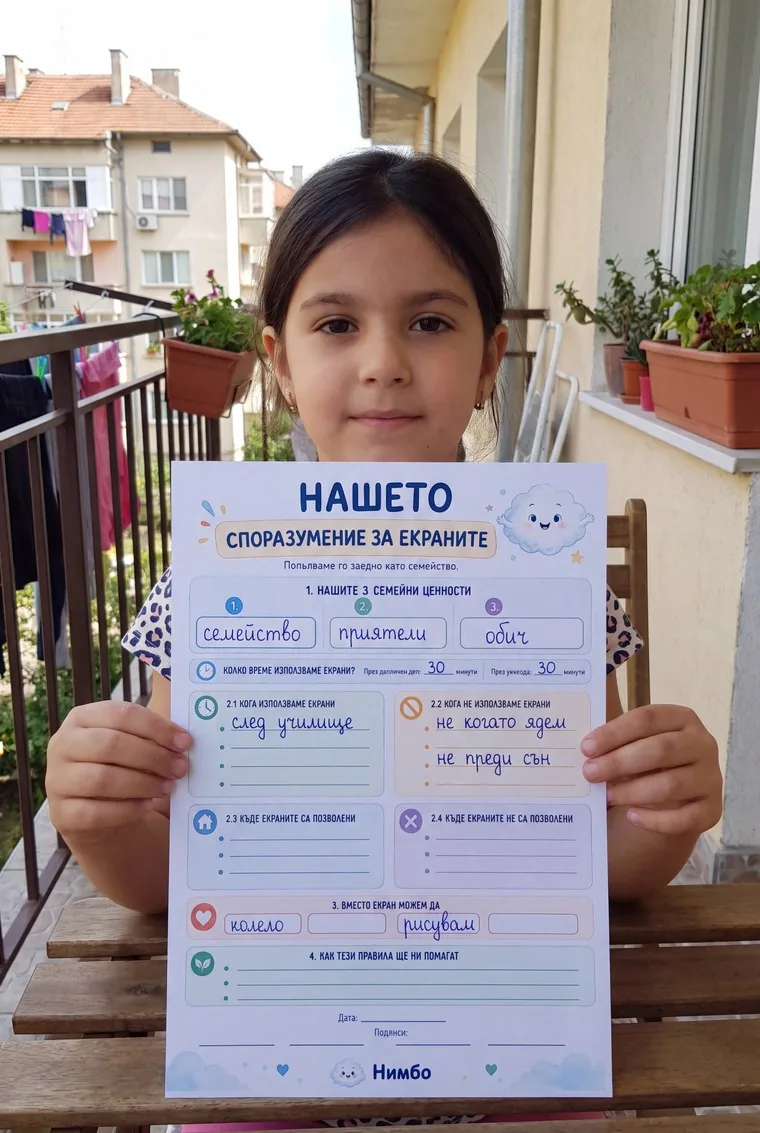 НАШЕТО
СПОРАЗУМЕНИЕ ЗА ЕКРАНИТЕ
Попълваме го заедно като семейство.
1. НАШИТЕ 3 СЕМЕЙНИ ЦЕННОСТИ
1. 2. 3.
семейство приятели обич
КОЛКО ВРЕМЕ ИЗПОЛЗВАМЕ ЕКРАНИ? През 30 минути През 30 минути
2.1 КОГА ИЗПОЛЗВАМЕ ЕКРАНИ
след училище
2.2 КОГА НЕ ИЗПОЛЗВАМЕ ЕКРАНИ
не когато ядем
не преди сън
2.3 КЪДЕ ЕКРАНИТЕ СА ПОЗВОЛЕНИ
2.4 КЪДЕ ЕКРАНИТЕ НЕ СА ПОЗВОЛЕНИ
3. ВМЕСТО ЕКРАН МОЖЕМ ДА
колело рисувам
4. КАК ТЕЗИ ПРАВИЛА ЩЕ НИ ПОМАГАТ
Дата:
Нимбо